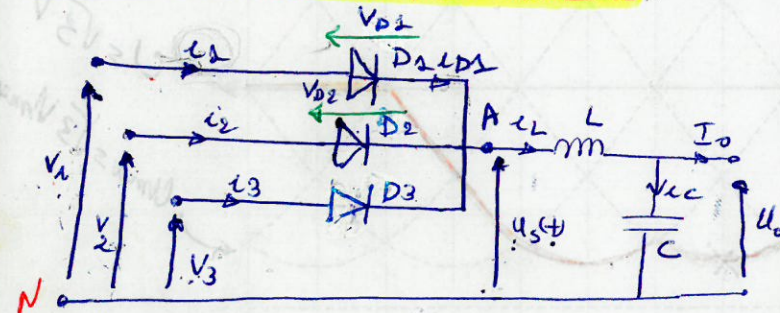 VD1
i1
D1 iD1
VD2
i2
D2
A iL L I0
V1
i3
D3
ic
V2
V3
us(t)
C
U0
N